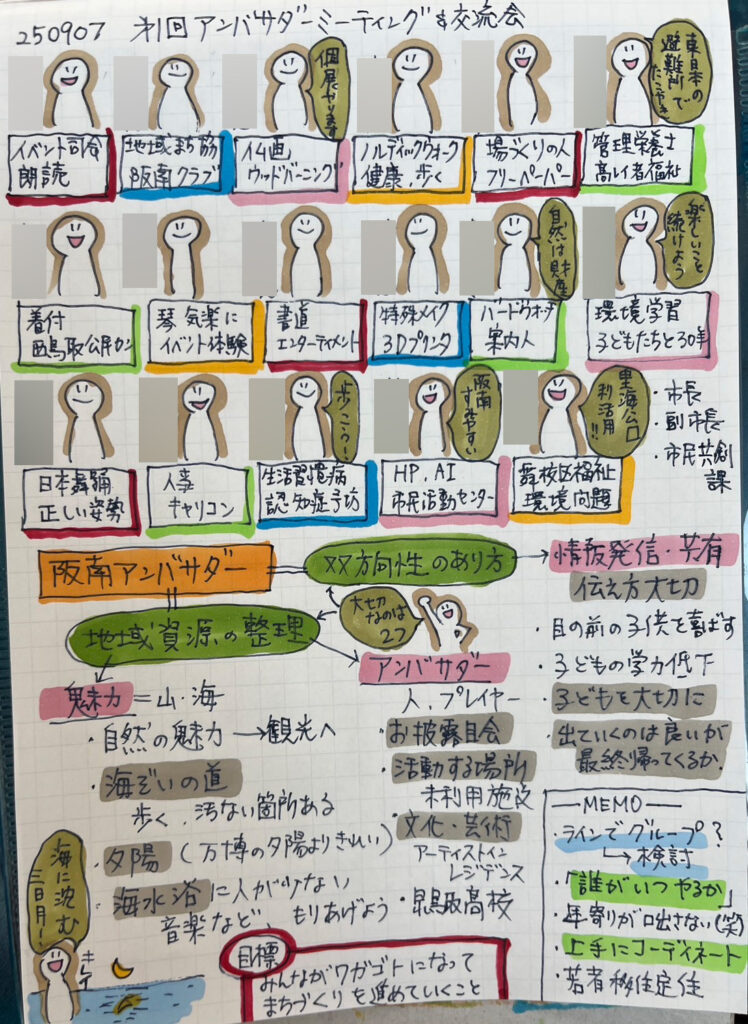 250907 才1回 アンバサダーミーティング&交流会
個展やります
東日本の
避難所で
たこやき
イベント司会
朗読
地域まち協
阪南クラブ
仏画
ウッドバーニング
ノルディックウォーク
健康、歩く
場づくりの人
フリーペーパー
管理栄養士
高レイ者福祉
自然は財産
楽しいこと
続けよう
着付
西鳥取公民カン
琴 気楽に
イベント体験
書道
エンターテイメント
特殊メイク
3Dプリンタ
バードウオッチ
案内人
環境学習
子どもたちと30年
歩こう!
阪南
すみやすい
里海公口
利活用!!
・市長
・副市長
・市民共創
課
日本舞踊
正しい姿勢
人事
キャリコン
生活習慣病
認知症予防
HP、AI
市民活動センター
校区福祉
環境問題
阪南アンバサダー
双方向性のあり方
情報発信・共有
伝え方大切
地域資源の整理
大切
なのは
2つ
・目の前の子供を喜ばす
・子どもの学力低下
・子どもを大切に
・出ていくのは良いが
最終帰ってくるか.
魅力=山・海
・自然の魅力→観光へ
・海ぞいの道
歩く、汚ない箇所ある
・夕陽(万博の夕陽よりきれい)
・海水浴に人が少ない
音楽など、もりあげよう
アンバサダー
人、プレイヤー
・お披露目会
・活動する場所
未利用施設
・文化・芸術
アーティストイン
レジデンス
・鳥取高校
MEMO
・ラインでグループ?
→検討
・「誰がいつやるか」
・年寄りが口出さない(笑)
・上手にコーディネート
・若者移住定住
海に沈む
三日月!
キレイ
目標
みんながワガゴトになって
まちづくりを進めていくこと